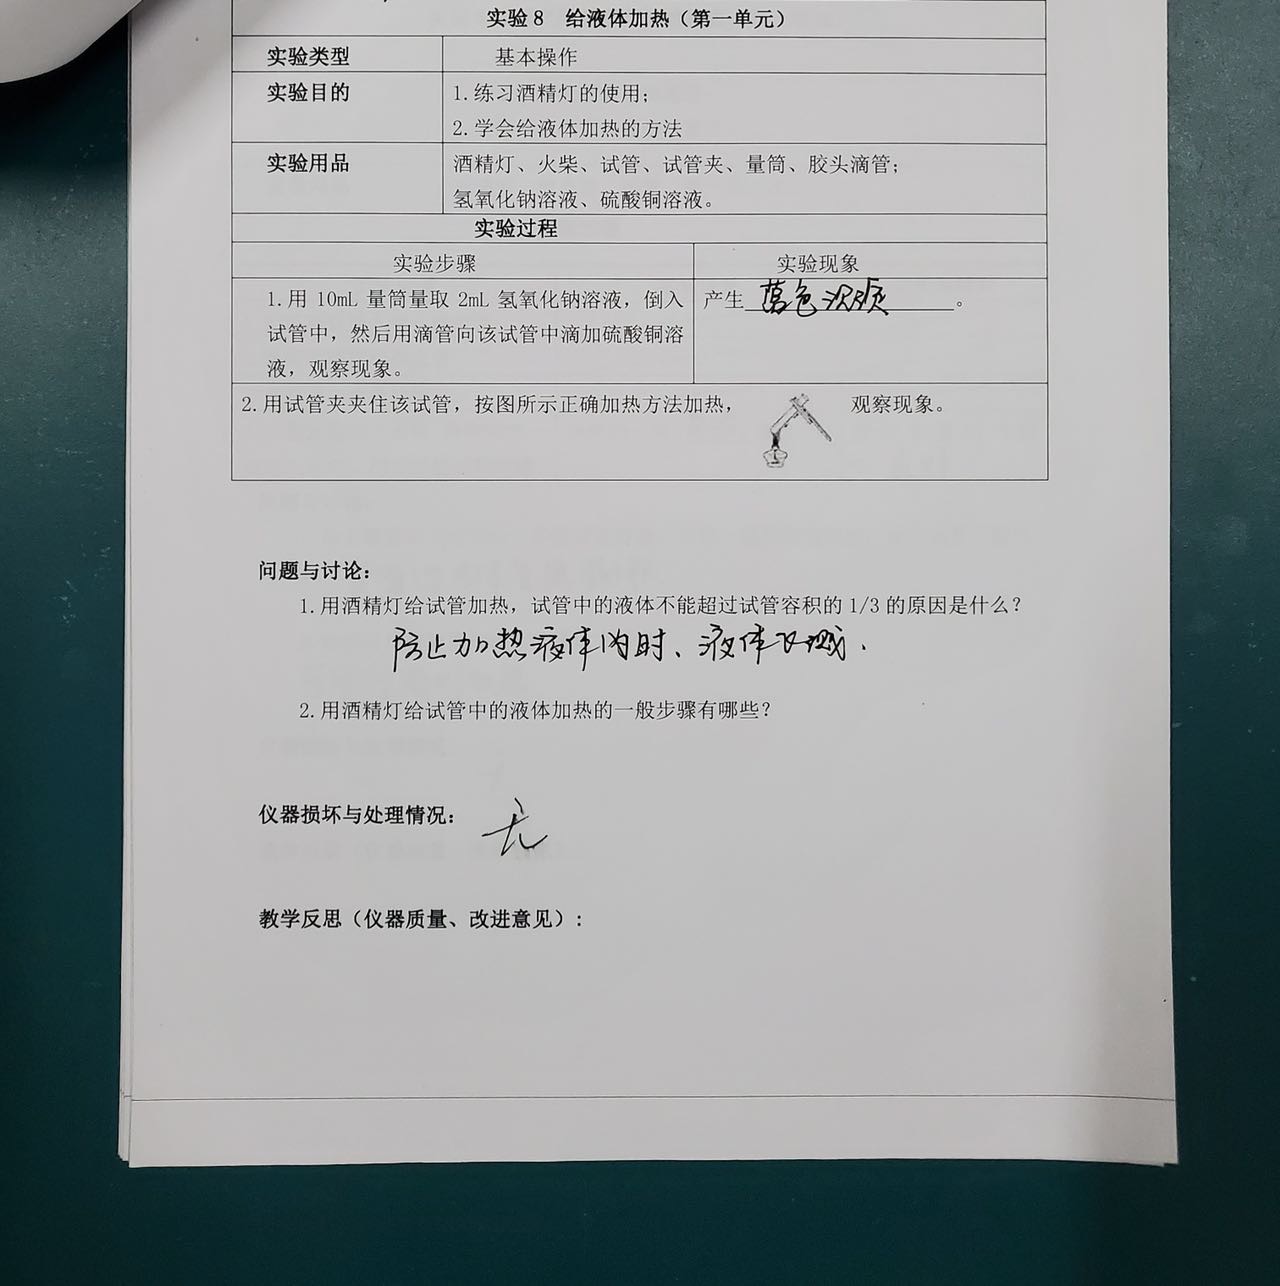 实验8 给液体加热（第一单元）
实验类型 基本操作
实验目的 1.练习酒精灯的使用；
2.学会给液体加热的方法
实验用品 酒精灯、火柴、试管、试管夹、量筒、胶头滴管；
氢氧化钠溶液、硫酸铜溶液。
实验过程
实验步骤 实验现象
1.用 10mL 量筒量取 2mL 氢氧化钠溶液，倒入 产生 蓝色沉质 。
试管中，然后用滴管向该试管中滴加硫酸铜溶
液，观察现象。
2.用试管夹夹住该试管，按图所示正确加热方法加热， 观察现象。
问题与讨论：
1.用酒精灯给试管加热，试管中的液体不能超过试管容积的 1/3 的原因是什么？
防止加热液体时、液体飞溅.
2.用酒精灯给试管中的液体加热的一般步骤有哪些？
仪器损坏与处理情况： 无
教学反思（仪器质量、改进意见）：